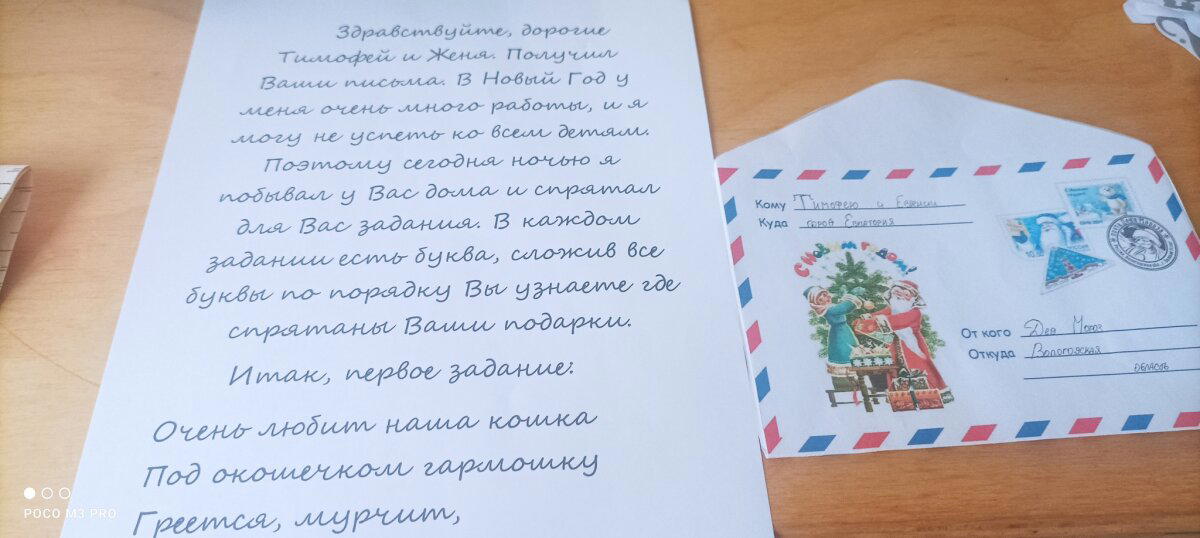 Здравствуйте, дорогие
Тимофей и Женя. Получил
Ваши письма. В Новый Год у
меня очень много работы, и я
могу не успеть ко всем детям.
Поэтому сегодня ночью я
побывал у Вас дома и спрятал
для Вас задания. В каждом
задании есть буква, сложив все
буквы по порядку Вы узнаете где
спрятаны Ваши подарки.
Итак, первое задание:
Очень любит наша кошка
Под окошечком гармошку
Греется, мурчит,
Кому Тимофею и Евгении
Куда город Евпатория
С новым годом!
От кого Дед Мороз
Откуда Вологодская
область
POCO M3 PRO